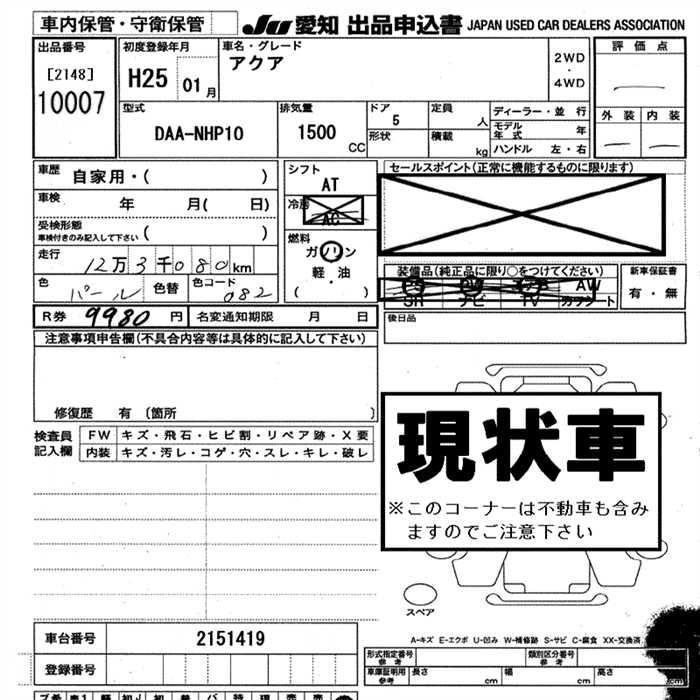 車内保管・守衛保管
JU 愛知 出品申込書 JAPAN USED CAR DEALERS ASSOCIATION
出品番号 [2148] 10007
初度登録年月 H25 01月
車名・グレード アクア
2WD ・ 4WD
評価点
外装 内装
型式 DAA-NHP10
排気量 1500 CC
ドア 5
形状
定員 人
積載 kg
ディーラー・並 行
モデル年式 年
ハンドル 左・右
車歴 自家用・( )
車検 年 月( 日)
受検形態
車検付きのみ記入して下さい ( )
走行 12万3千080km
色 パール 色替 色コード 082
シフト AT
冷房 AC
燃料 ガソリン
軽・油
( ・ )
セールスポイント(正常に機能するものに限ります)
装備品(純正品に限り○をつけてください)
PS PW AW
SR ナビ TV カワシート
新車保証書
有・無
R券 9980 円 名変通知期限 月 日
後日品
注意事項申告欄(不具合内容等は具体的に記入して下さい)
修復歴 有 〔箇所 〕
検査員記入欄
FW キズ・飛石・ヒビ割・リペア跡・X要
内装 キズ・汚レ・コゲ・穴・スレ・キレ・破レ
現状車
※このコーナーは不動車も含み
ますのでご注意下さい
スペア
A-キズ E-エクボ U-凹み W-補修跡 S-サビ C-腐食 XX-交換済
車台番号 2151419
登録番号
形式指定番号 参考
類別区分番号 参考
車庫証明用 参考 長さ cm 幅 cm 高さ cm